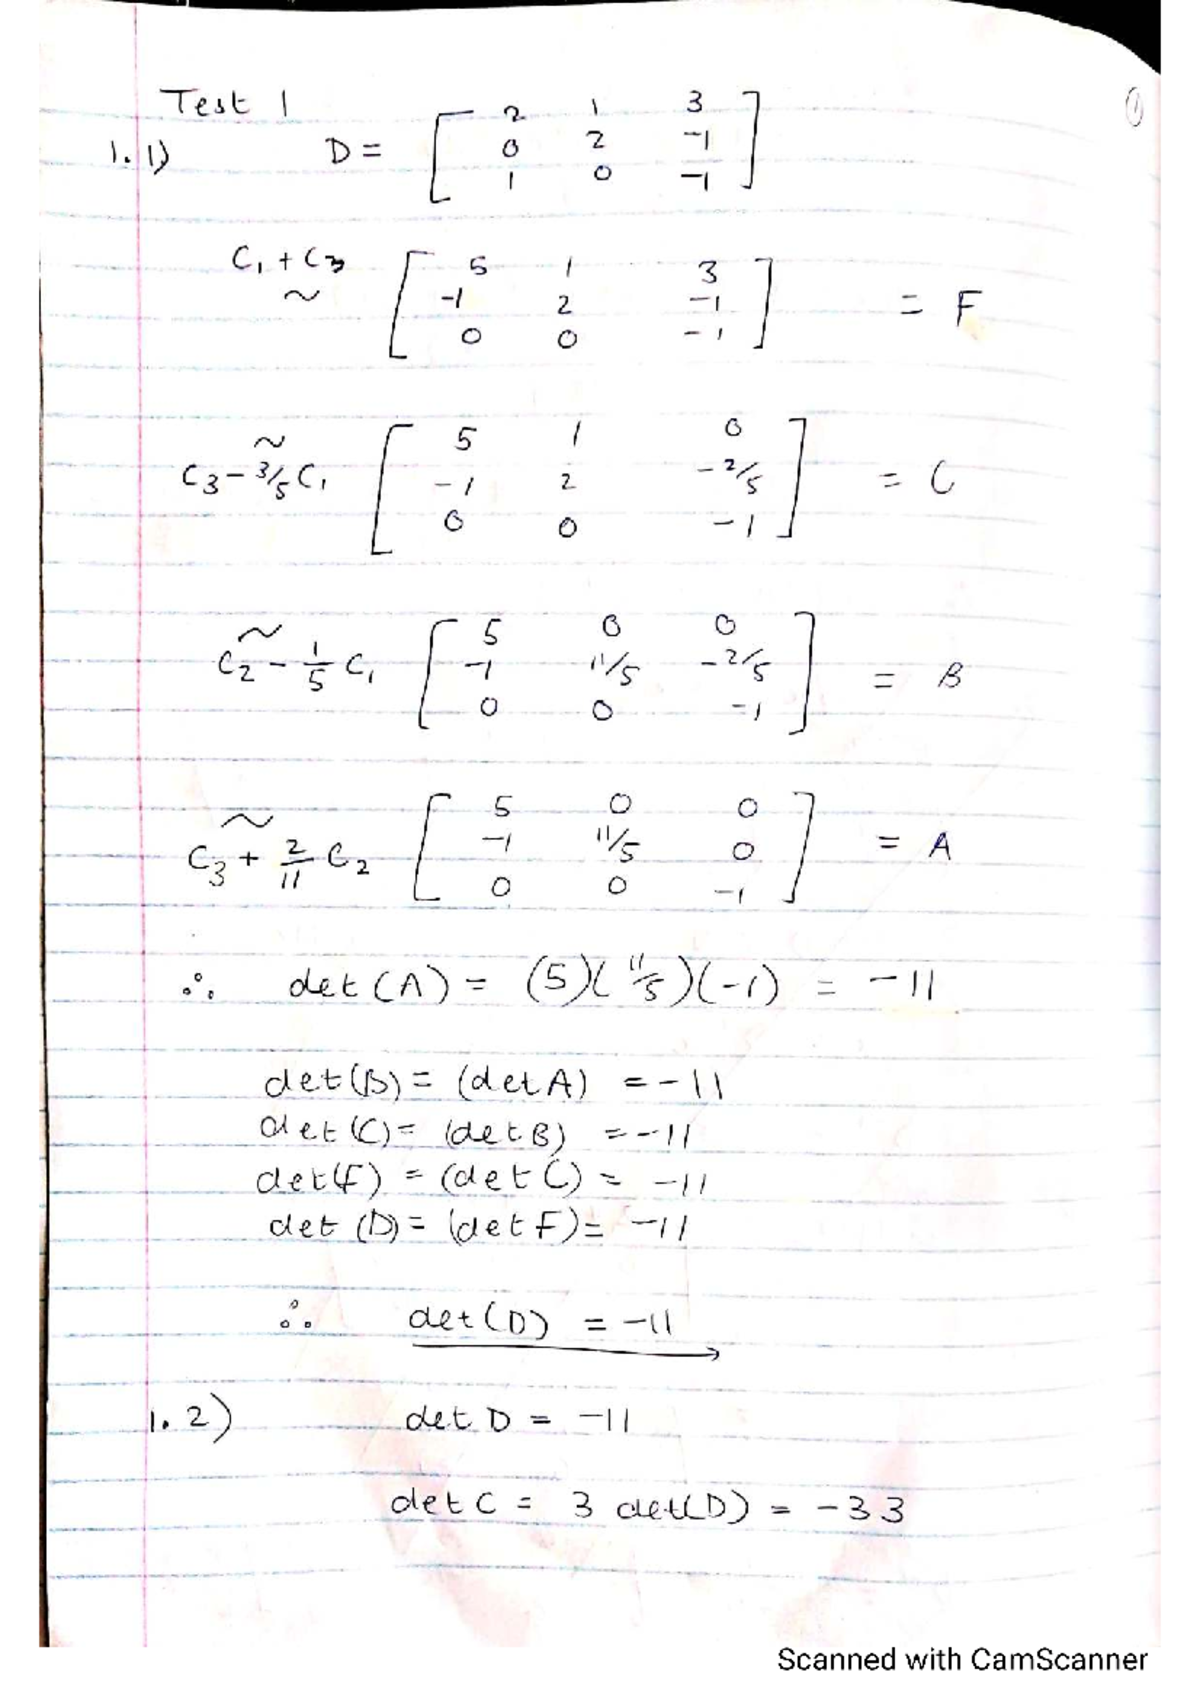 Test 1
①
1.1) D = [ 2 1 3
0 2 -1
1 0 -1 ]
C₁ + C₃ ~ [ 5 1 3
-1 2 -1
0 0 -1 ] = F
~ C₃ - 3/5 C₁ [ 5 1 0
-1 2 -2/5
0 0 -1 ] = C
~ C₂ - 1/5 C₁ [ 5 0 0
-1 11/5 -2/5
0 0 -1 ] = B
~ C₃ + 2/11 C₂ [ 5 0 0
-1 11/5 0
0 0 -1 ] = A
∴ det(A) = (5)(11/5)(-1) = -11
det(B) = (det A) = -11
det(C) = (det B) = -11
det(F) = (det C) = -11
det(D) = (det F) = -11
∴ det(D) = -11
1.2) det D = -11
det C = 3 det(D) = -33
Scanned with CamScanner